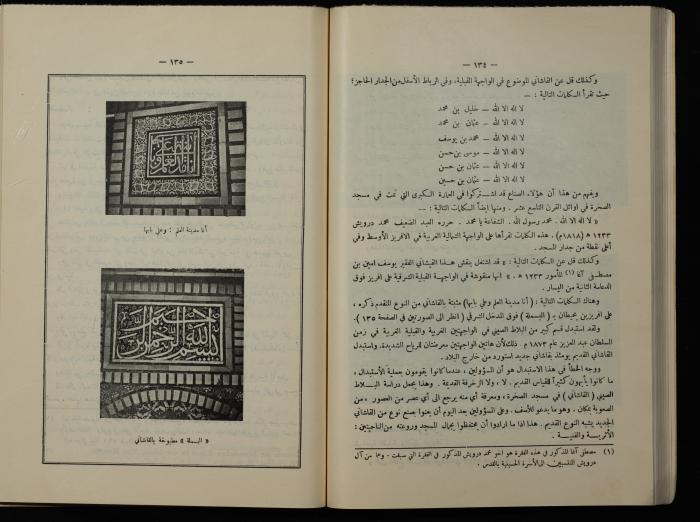 — ١٣٤ —
وكذلك قل عن القاشاني الموضوع في الواجهة القبلية، وفي الرباط الأسفل من الجدار الحاجز؛
حيث تقرأ الكلمات التالية : —
لا اله الا الله — خليل بن محمد
لا اله الا الله — عثمان بن محمد
لا اله الا الله — محمد بن يوسف
لا اله الا الله — موسى بن حسن
لا اله الا الله — عثمان بن حسن
لا اله الا الله — عثمان بن حسين
ويفهم من هذا أن هؤلاء الصناع قد اشتركوا في العمارة الكبرى التي تمت في مسجد
الصخرة في أوائل القرن التاسع عشر . ومنها ايضاً الكلمات التالية : —
« لا اله الا الله . محمد رسول الله . الشفاعة يا محمد . حرره العبد الضعيف محمد درويش
١٢٣٣ ه (١٨١٨م) . هذه الكلمات تقرأها على الواجهة الشمالية الغربية في الافريز الأوسط وفي
أعلى نقطة من جدار المسجد .
وكذلك قل عن الكلمات التالية : « قد اشتغل بنقش هذا القيشاني الفقير يوسف امين بن
مصطفى آغا (١) المأمور ١٢٣٣ ه . » انها منقوشة في الواجهة القبلية الشرقية على افريز فوق
الدعامة الثانية من اليسار .
وهناك الكلمات التالية : ( أنا مدينة العلم وعلي بابها ) مثبتة بالقاشاني من النوع المتقدم ذكره ،
على افريز بن يحيطان بـ ( البسملة ) فوق المدخل الشرقي ( انظر الى الصورتين في الصفحة ١٣٥ ) .
ولقد استبدل قسم كبير من البلاط الصيني في الواجهتين الغربية والقبلية الغربية في زمن
السلطان عبد العزيز عام ١٨٧٣ م . ذلك لأن هاتين الواجهتين معرضتان للرياح الشديدة. واستبدل
القاشاني القديم يومئذ بقاشاني جديد استورد من خارج البلاد .
ووجه الخطأ في هذا الاستبدال هو أن المسؤولين ، عندما كانوا يقومون بعملية الاستبدال ،
ما كانوا يأبهون كثيراً للقياس القديم . لا ، ولا الزخرفة القديمة . وهذا يجعل دراسة البلاط
الصيني ( القاشاني ) في مسجد الصخرة ، ومعرفة أي منه يرجع الى أي عصر من العصور ، من
الصعوبة بمكان . وهو ما يدعو للأسف . وعلى المسؤولين بعد اليوم أن يعنوا بصنع نوع من القاشاني
الجديد يشبه النوع القديم . هذا اذا ما ارادوا أن يحتفظوا بجمال المسجد وروعته من الناحيتين :
الأثرية والفنية .
(١) مصطفى آغا المذكور في هذه الفقرة هو اخو محمد درويش المذكور في الفقرة التي سبقت . وهما من آل
درويش المنتسبين الى الأسرة الحسينية بالقدس .
— ١٣٥ —
أنا مدينة العلم : وعلي بابها
« البسملة » مطبوخة بالقاشاني
بسم الله الرحمن الرحيم